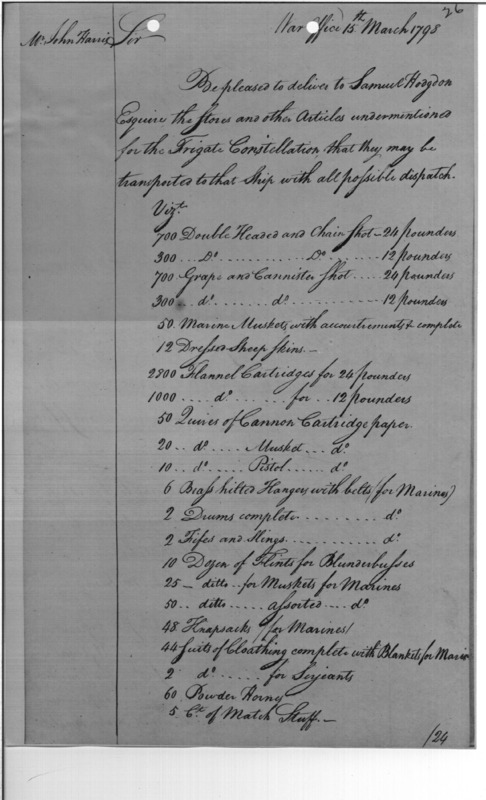 26
War Office 15th March 1798
Mr. John Harris
Sir
Be pleased to deliver to Samuel Hodgdon
Esquire the stores and other Articles undermentioned
for the Frigate Constellation that they may be
transported to that Ship with all possible dispatch.
Vizt.
700 Double Headed and Chain Shot - 24 pounders
300 ... Do ........ Do ........ 12 pounders
700 Grape and Cannister Shot .... 24 pounders
300 .. do. ...... do. ........ 12 pounders
50 Marine Muskets with accoutrements complete
12 Dressed Sheep Skins. -
2800 Flannel Cartridges for 24 pounders
1000 .... do. ...... for .. 12 pounders
50 Quires of Cannon Cartridge paper.
20 .. do. .... Musket ... do.
10 .. do. .... Pistol ..... do.
6 Brass hilted Hangers with belts (for Marines)
2 Drums complete ......... do.
2 Fifes and Slings ........... do.
10 Dozen of Flints for Blunderbusses
25 - ditto .. for Muskets for Marines
50 .. ditto ..... assorted .... do.
48 Knapsacks (for Marines)
44 Suits of Cloathing complete with Blankets for Marines
2 do. ..... for Serjeants
60 Powder Horns
5 Ct. of Match Stuff. -
/24